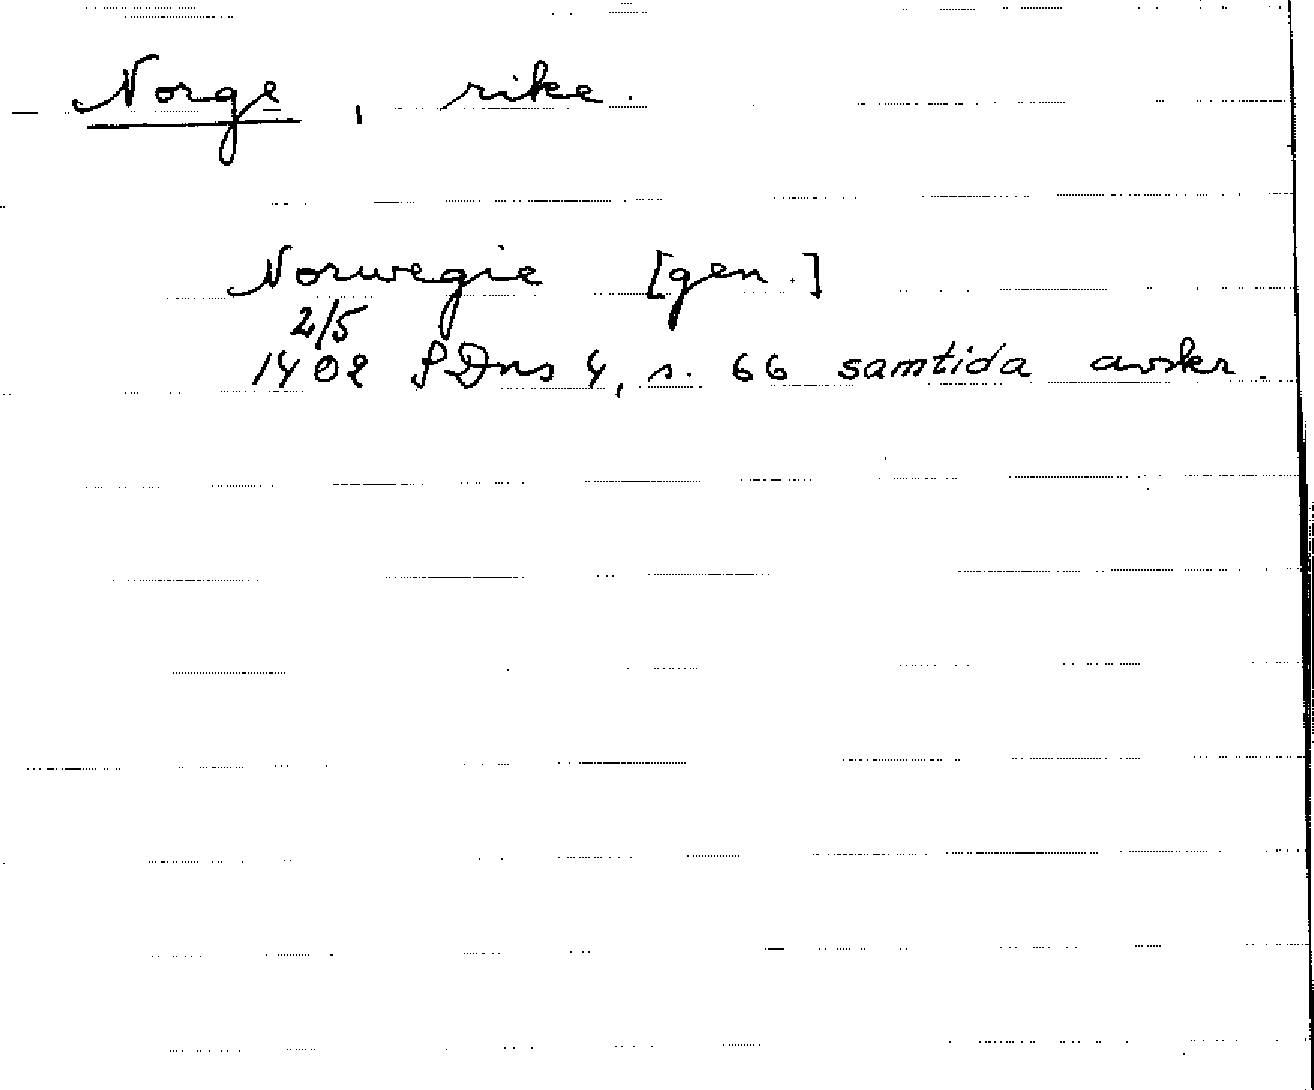 Norge, rike.
Norwegie [gen.]
2/5
1402 SDns 4, s. 66 samtida avskr.